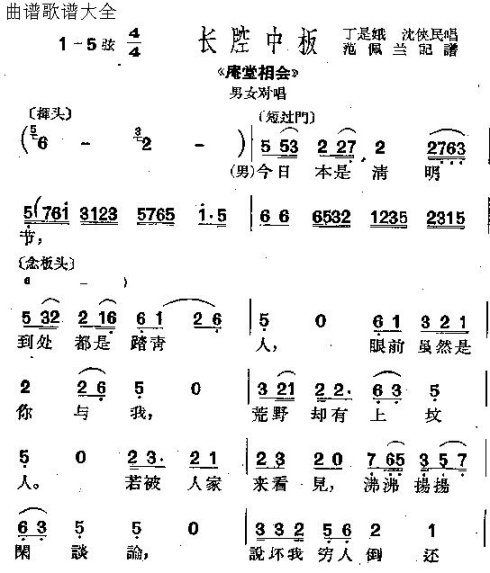 曲谱歌谱大全
1-5弦 4/4 长腔中板 丁是娥 沈侠民唱
范佩兰記譜
《庵堂相会》
男女对唱
〔搖头〕 〔短过門〕
( 5 6 - 3 2 - ) | 5 53 2 27 2 2763
(男)今日 本是 清 明
5(761 3123 5765 1·5 | 6 6 6532 1235 2315
节,
〔念板头〕
6 - )
5 32 2 16 6 1 2 6 | 5 0 6 1 3 2 1
到处 都是 踏青 人, 眼前 虽然是
2 2 6 5 0 | 3 21 2 2· 6 3 5
你 与 我, 荒野 却有 上 坟
5 0 2 3· 2 1 | 2 3 2 0 7 65 3 5 7
人。 若被 人家 来看 見, 沸沸 揚揚
6 3 5 5 0 | 3 3 2 5 6 2 1
閑 談 論, 說坏我 穷人 倒 还